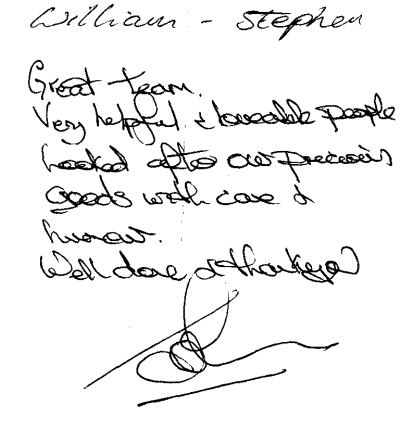 William - Stephen
Great team.
Very helpful & loveable people
Looked after our precious
goods with care &
humour.
Well done & thankyou